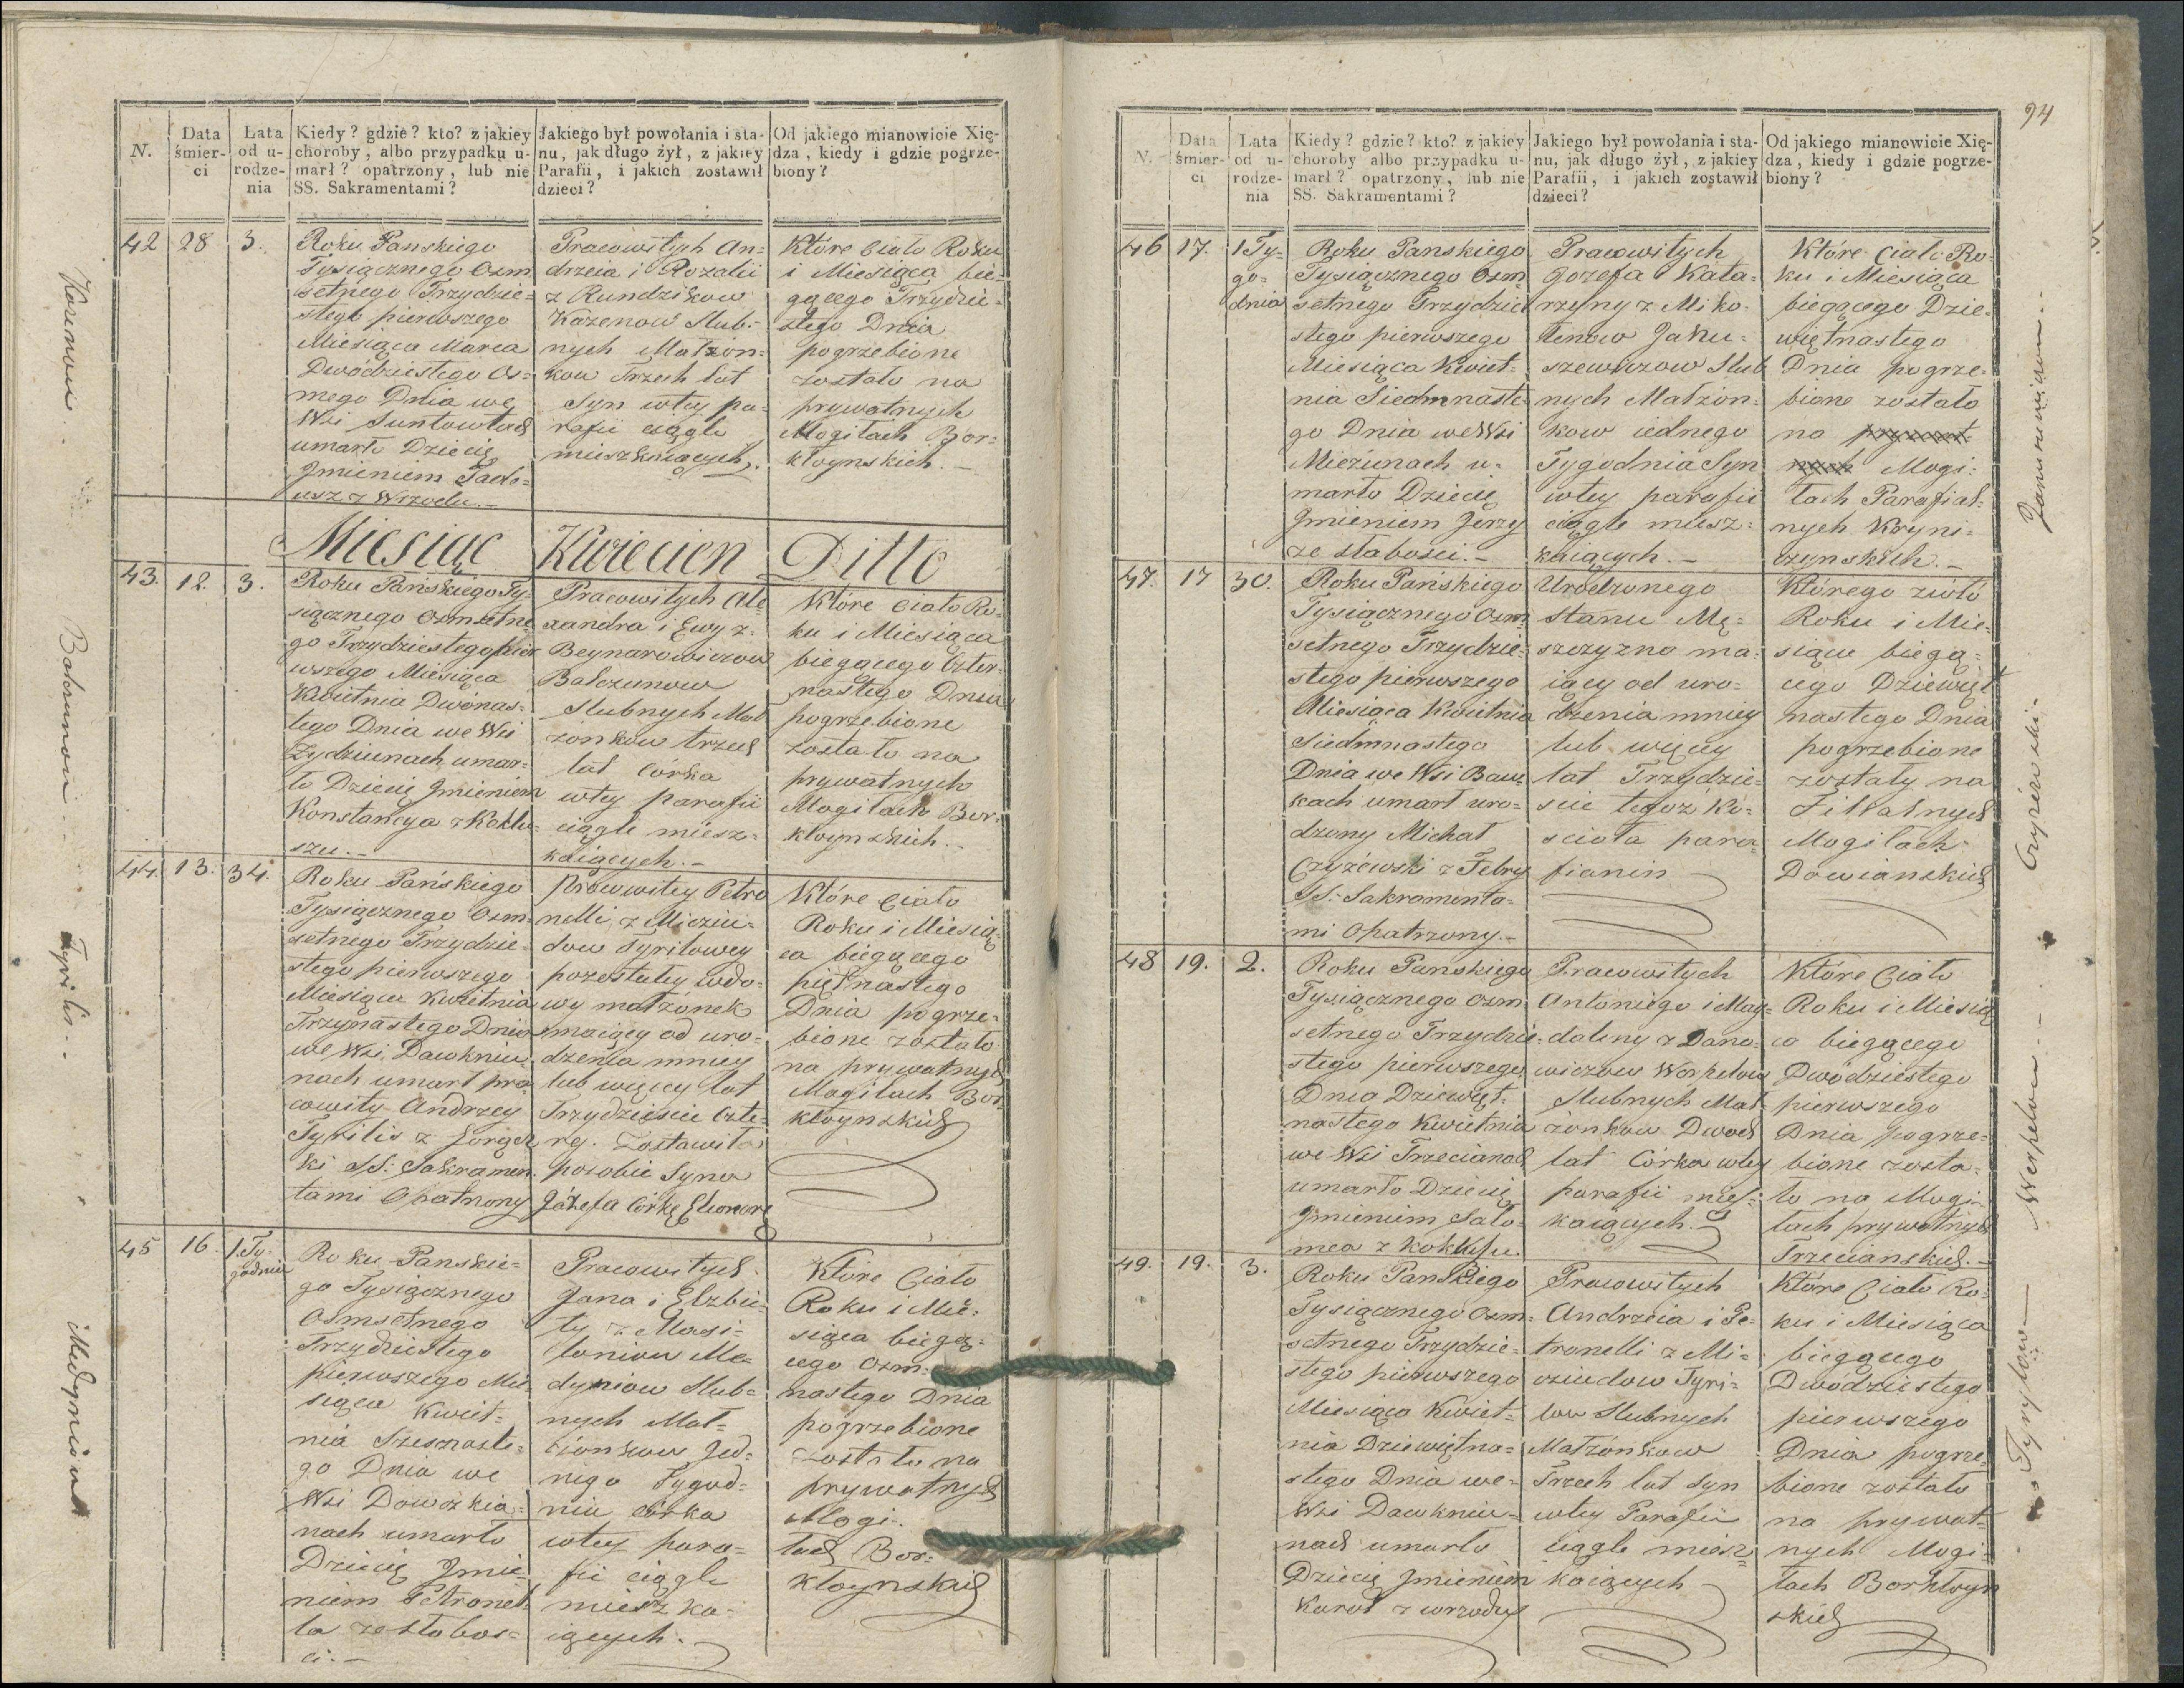 N.
Data śmier-
ci
Lata
od u-
rodze-
nia
Kiedy? gdzie? kto? z jakiey
choroby, albo przypadku u-
marł? opatrzony, lub nie
SS. Sakramentami?
Jakiego był powołania i sta-
nu, jak długo żył, z jakiey
Parafii, i jakich zostawił
dzieci?
Od jakiego mianowicie Xię-
dza, kiedy i gdzie pogrze-
biony?
42
28
3.
Roku Panskiego
Tysiącznego Osm
setnego Trzydzie-
stego pierwszego
Miesiąca Marca
Dwódziestego Os-
mego Dnia we
Wsi Suntowtach
umarło Dziecię
Jmieniem Tade-
usz z Wrzodu.-
Pracowitych An-
drzeia i Rozalii
z Rundzikow
Kazenow Slub-
nych Małżon-
kow Trzech lat
Syn wtey pa-
rafii ciągle
mieszkaiących.
Które Ciało Roku
i Miesiąca bie-
gącego Trzydzie-
stego Dnia
pogrzebione
zostało na
prywatnych
Mogiłach Bor-
kłoynskich.-
Kazenow
Miesiąc Kwiecien Ditto
43.
12.
3.
Roku Pańskiego Ty-
siącznego Osmsetne
go Trzydziestego pier
wszego Miesiąca
Kwietnia Dwónas-
tego Dnia we Wsi
Zydziunach umar-
ło Dziecię Jmieniem
Konstancya z Koklu-
szu.-
Pracowitych Ale-
xandra i Ewy z
Beynarowiczow
Balczunow
Slubnych Mał
żonkow trzech
lat Córka
wtey parafii
ciągle miesz-
kaiących.-
Które Ciało Ro-
ku i Miesiąca
biegącego Czter-
nastego Dnia
pogrzebione
zostało na
prywatnych
Mogiłach Bor-
kłoynskich.-
44.
13.
34.
Roku Pańskiego
Tysiącznego Osm-
setnego Trzydzie-
stego pierwszego
Miesiąca Kwietnia
Trzynastego Dnia
we Wsi Dawkniu-
nach umarł pra-
cowity Andrzey
Tyrilis z Gorącz
ki SS: Sakramen-
tami Opatrzony
Pracowitey Petro
nelli z Micziu-
dow Tyrilowey
pozostałey wdo-
wy małżonek
maiący od uro-
dzenia mniey
lub więcey lat
Trzydziescie Czte-
ry. Zostawił
posobie Syna
Józefa Córkę Eleonorę
Które Ciało
Roku i Miesią-
ca biegącego
piętnastego
Dnia pogrze-
bione zostało
na prywatnych
Mogiłach Bor-
kłoynskich
Tyrilis
45
16.
1. Ty-
godnia
Roku Panskie-
go Tysiącznego
Osmsetnego
Trzydziestego
pierwszego Mie
siąca Kwiet-
nia Szesnaste-
go Dnia we
Wsi Dowozkia-
nach umarło
Dziecię Jmie-
niem Petronel-
la ze słabos-
ci.-
Pracowitych
Jana i Elzbie-
ty z Masi-
loniow Me-
dyniow Slub-
nych Mał-
żonkow Jed-
nego Tygod-
nia córka
wtey para-
fii ciągle
mieszka-
iących.
Które Ciało
Roku i Mie-
siąca biegą-
cego Osm-
nastego Dnia
pogrzebione
zostało na
prywatnych
Mogi-
łach Bor-
kłoynskich
Medyniow
94
N.
Data śmier-
ci
Lata
od u-
rodze-
nia
Kiedy? gdzie? kto? z jakiey
choroby albo przypadku u-
marł? opatrzony, lub nie
SS. Sakramentami?
Jakiego był powołania i sta-
nu, jak długo żył, z jakiey
Parafii, i jakich zostawił
dzieci?
Od jakiego mianowicie Xię-
dza, kiedy i gdzie pogrze-
biony?
46
17.
1 Ty-
go-
dnia
Roku Panskiego
Tysiącznego Osm-
setnego Trzydzie
stego pierwszego
Miesiąca Kwiet-
nia Siedmnaste-
go Dnia we Wsi
Mieżiunach u-
marło Dziecię
Jmieniem Jerzy
ze słabości.-
Pracowitych
Jozefa i Kata-
rzyny z Miko-
łenow Janu-
szewiczow Slub
nych Małżon-
kow iednego
Tygodnia Syn
wtey parafii
ciągle miesz-
kaiących.-
Które Ciało Ro-
ku i Miesiąca
biegącego Dzie-
więtnastego
Dnia pogrze-
bione zostało
na prywat-
nych Mogi-
łach Parafial-
nych Kryni-
czynskich.-
47.
17
30.
Roku Pańskiego
Tysiącznego Osm-
setnego Trzydzie-
stego pierwszego
Miesiąca Kwietnia
Siedmnastego
Dnia we Wsi Baw-
kach umarł uro-
dzony Michał
Czyżewski z Febry
SS: Sakramenta-
mi Opatrzony.-
Urodzonego
stanu Mę-
szczyzna ma-
iący od uro-
dzenia mniey
lub więcey
lat Trzydzie-
scie tegoz Ko-
scioła para-
fianin
Którego zioło
Roku i Mie-
siąca biegą-
cego Dziewięt
nastego Dnia
pogrzebione
zostały na
Filialnych
Mogiłach
Dowianskich
Czyzewski.
48
19.
2.
Roku Panskiego
Tysiącznego Osm
setnego Trzydzie-
stego pierwszego
Dnia Dziewięt-
nastego Kwietnia
we Wsi Trzecianach
umarło Dziecię
Jmieniem Salo-
mea z Kokluszu
Pracowitych
Antoniego i Mag-
daleny z Dano-
wiczow Werpelow
Slubnych Mał-
żonkow Dwoch
lat Córka wtey
parafii miesz-
kaiących.
Które Ciało
Roku i Miesią
ca biegącego
Dwódziestego
pierwszego
Dnia pogrze-
bione zosta-
ło na Mogi-
łach prywatnych
Trzecianskich.-
Werpelow
49.
19.
3.
Roku Panskiego
Tysiącznego Osm-
setnego Trzydzie-
stego pierwszego
Miesiąca Kwiet-
nia Dziewiętna-
stego Dnia we
Wsi Dawkniu-
nach umarło
Dziecię Jmieniem
Karol z wrzodu
Pracowitych
Andrzeia i Pe-
tronelli z Mi-
cziudow Tyri-
low Slubnych
Małżonkow
Trzech lat Syn
wtey Parafii
ciągle miesz-
kaiących
Które Ciało Ro-
ku i Miesiąca
biegącego
Dwódziestego
pierwszego
Dnia pogrze-
bione zostało
na prywat-
nych Mogi-
łach Borkłoyn
skich
Tyrylow